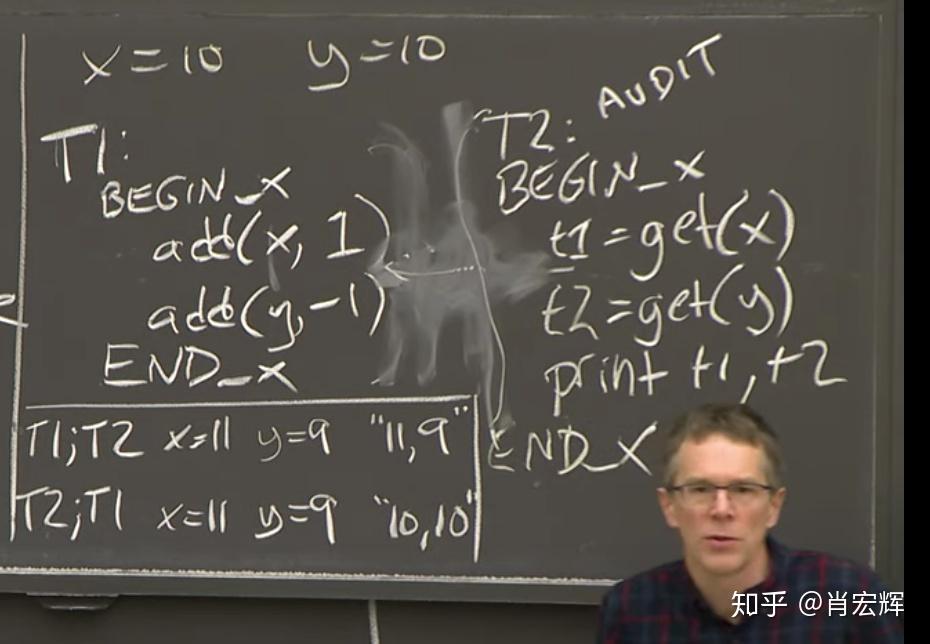 x=10 y=10
T1:
BEGIN_X
add(x, 1)
add(y,-1)
END_X
T2: AUDIT
BEGIN_X
t1=get(x)
t2=get(y)
print t1,t2
END_X
T1;T2 x=11 y=9 "11,9"
T2;T1 x=11 y=9 "10,10"
知乎 @肖宏辉